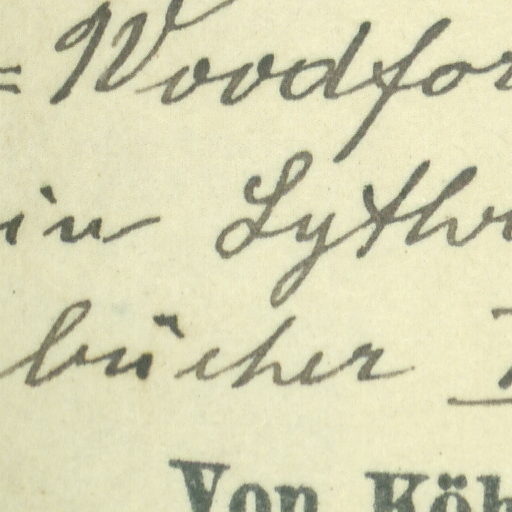 = Woodfor
in Lythr
bücher
Von Köh